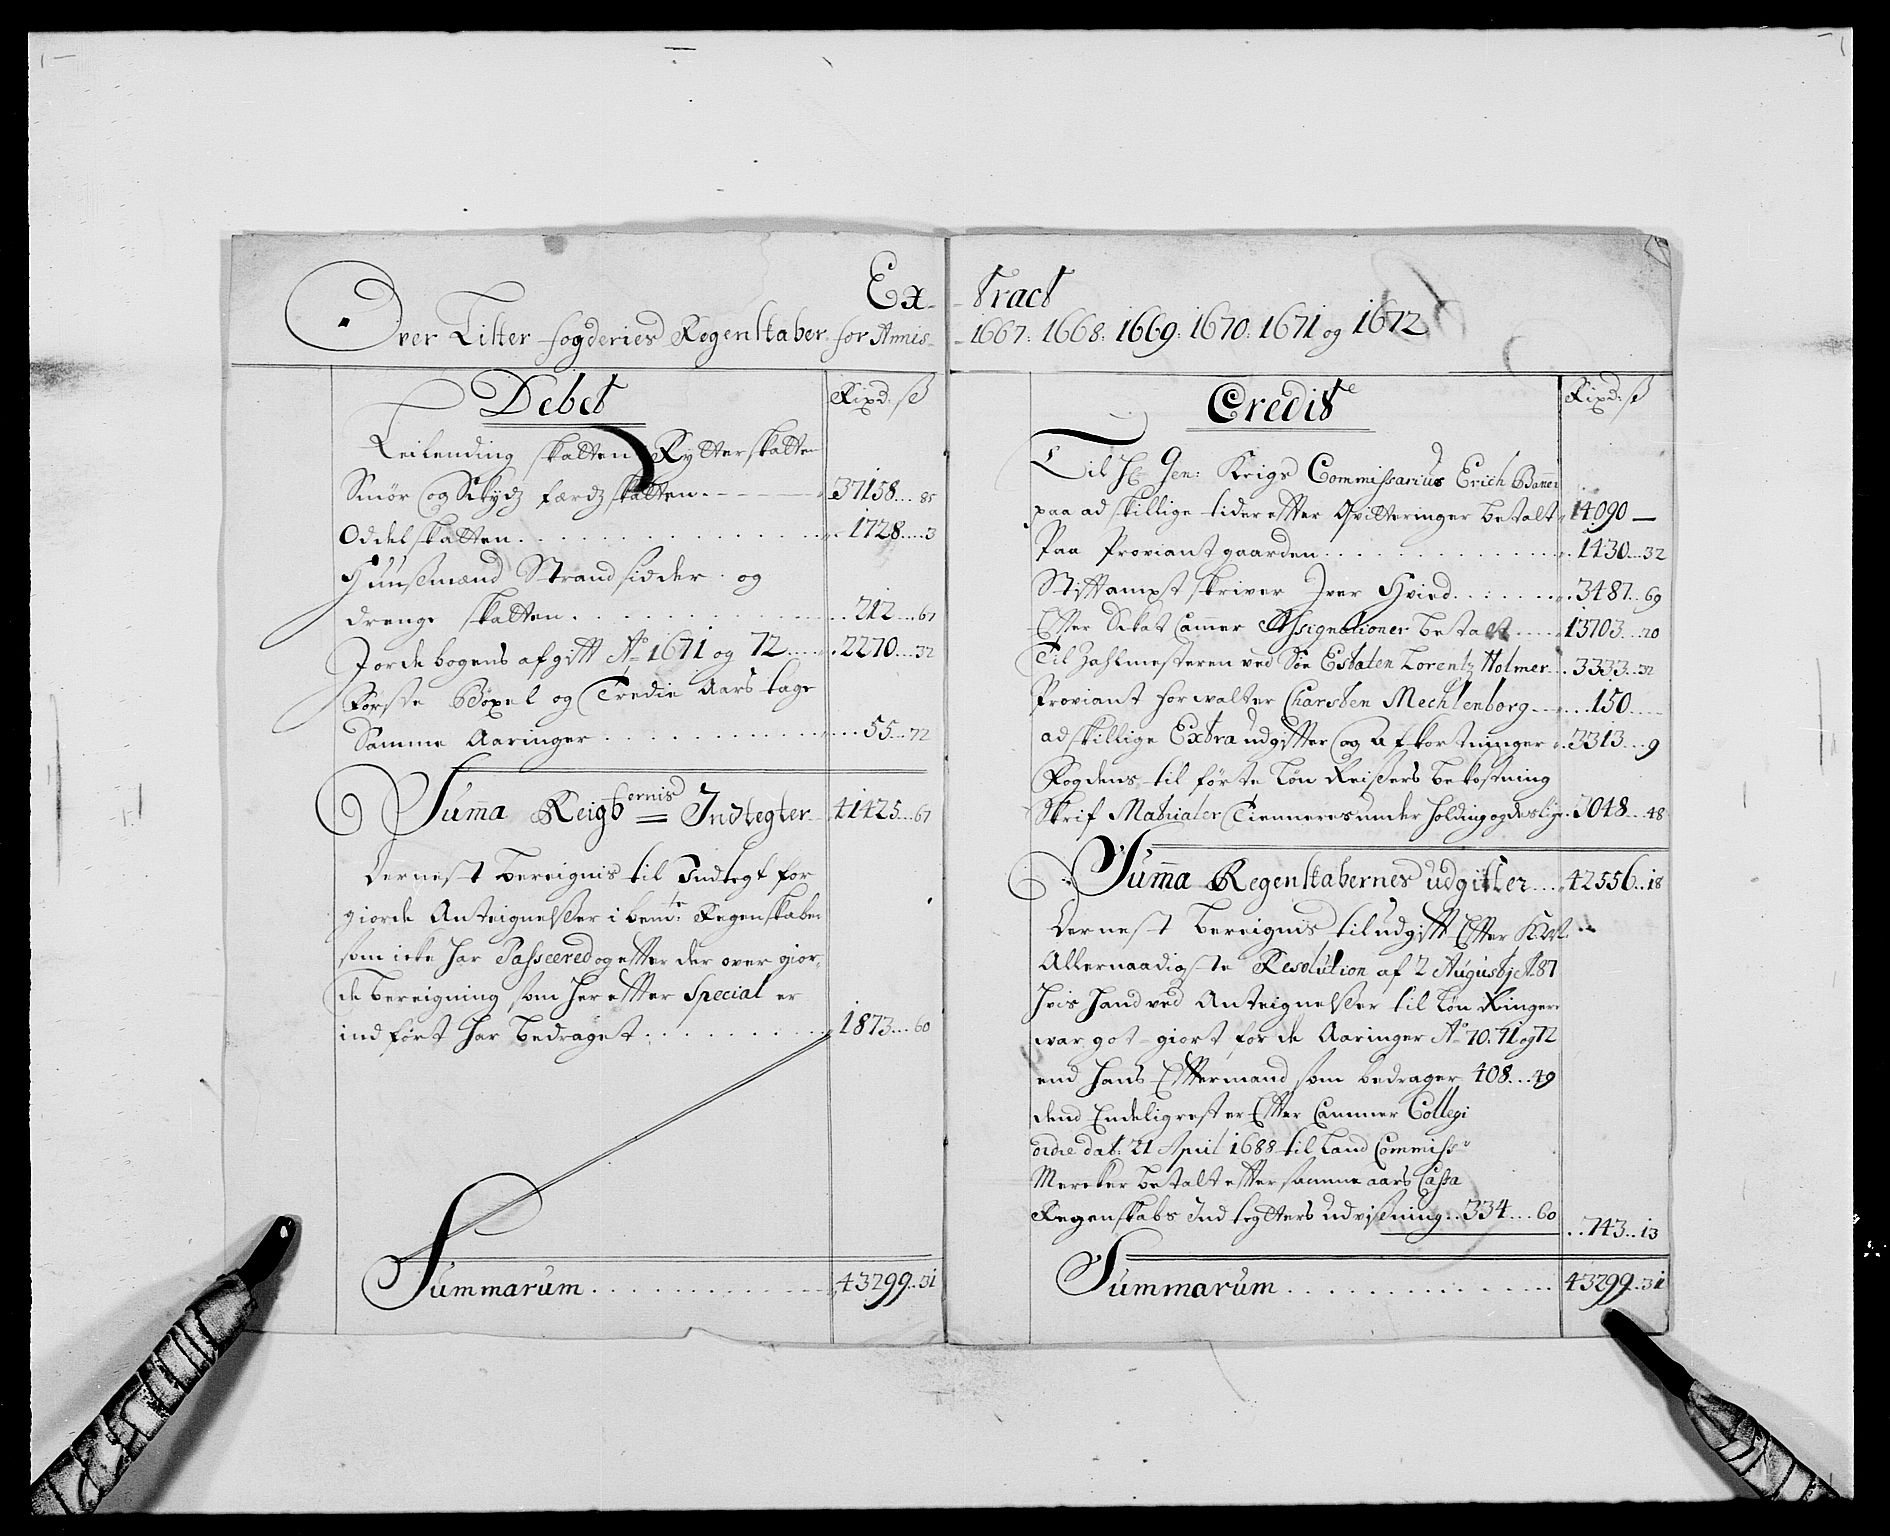 Extract
Over Lister fogderies Regenskaber for Annis 1667: 1668: 1669: 1670: 1671 og 1672
Debet
Rixd: ß
Leilending skatten Rytterskatten
Smör og Skydz færdz skatten 37158 85
Oddelskatten 1728 3
Huusemænd Strandsidder og
drenge skatten 212 67
Jordebogens afgifft Ao 1671 og 72 2270 32
Förste Böxel og Tredie Aars tage
Samme Aaringer 55 72
Summa Reigbernis Indtegter 41425 67
Dernest bereignis til Indtegt for
giorde Anteignelsser i bemte: Regenskaber
som icke har Passeered og effter der over gior-
de bereigning som her effter Special er
indfört har bedraget 1873 60
Summarum 43299 31
Credit
Rixd: ß
Til Hr Gen: Krigs Commissarius Erich Banner
paa adskillige tider effter Qvitteringer betalt 14090 —
Paa Proviantgaarden 1430 32
Stifftampst skriver Iver Hvied 3487 69
Effter Skat Camer Assignationer betalt 13703 20
Til Zahlmesteren ved Söe Estaten Lorentz Holmer 3333 32
Proviant forwalter Charsten Mechlenborg 150
adskillige Extra udgiffter og Afkortninger 3313 9
Fogdens til förte Lön Reisers bekostning
Skrif Matrialer Tienneres underholding og deslige 3048 48
Summa Regenskabernes udgiffter 42556 18
Dernest bereignis til udgifft Effter K: M:
Allernaadigste Resolution af 2 Augustj A: 87
hvis hand ved Anteignelsser til Lön Ringere
war got giort for de Aaringer Ao 70. 71 og 72
end hans Effermand som bedrager 408 49
dend Endelig rest er Effter Cammer Collegi
ordre dat: 21 April 1688 til Land Commiss:
Mercker betalt effter samme aars Cassa
Regenskabs Indtegters udvissning 334 60
743 13
Summarum 43299 31